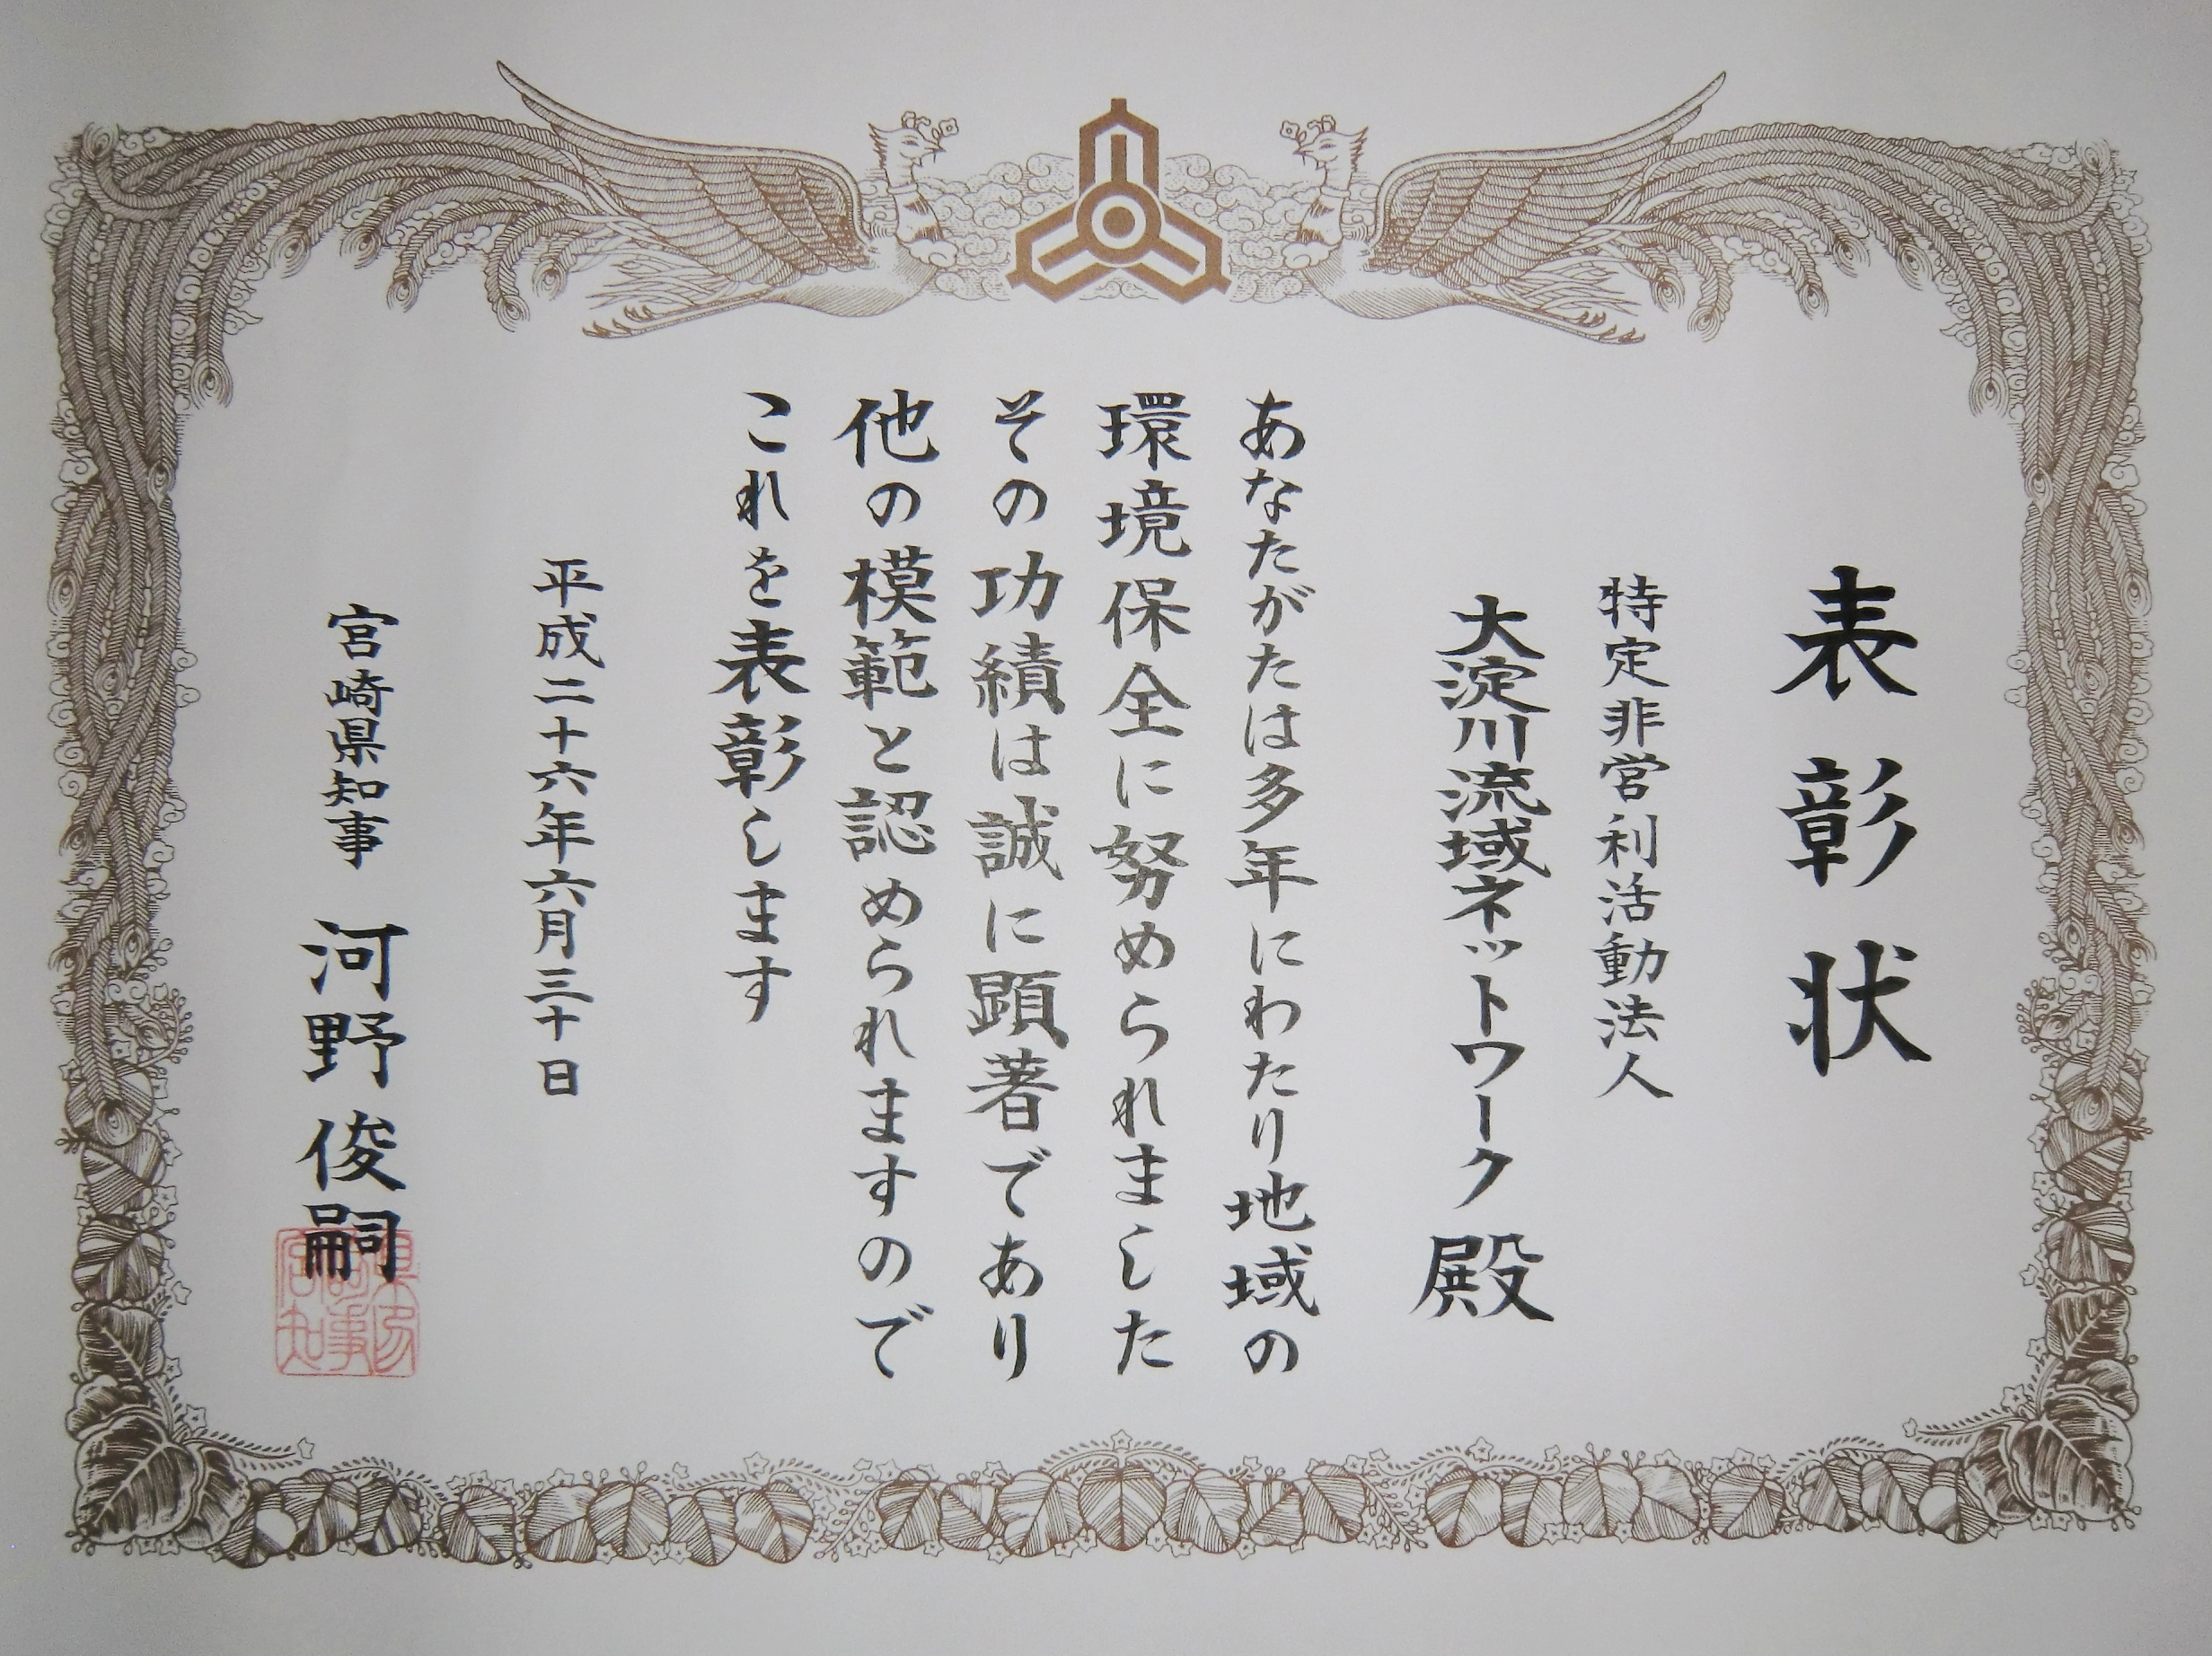 表彰状
特定非営利活動法人
大淀川流域ネットワーク 殿
あなたがたは多年にわたり地域の
環境保全に努められました
その功績は誠に顕著であり
他の模範と認められますので
これを表彰します
平成二十六年六月三十日
宮崎県知事 河野俊嗣